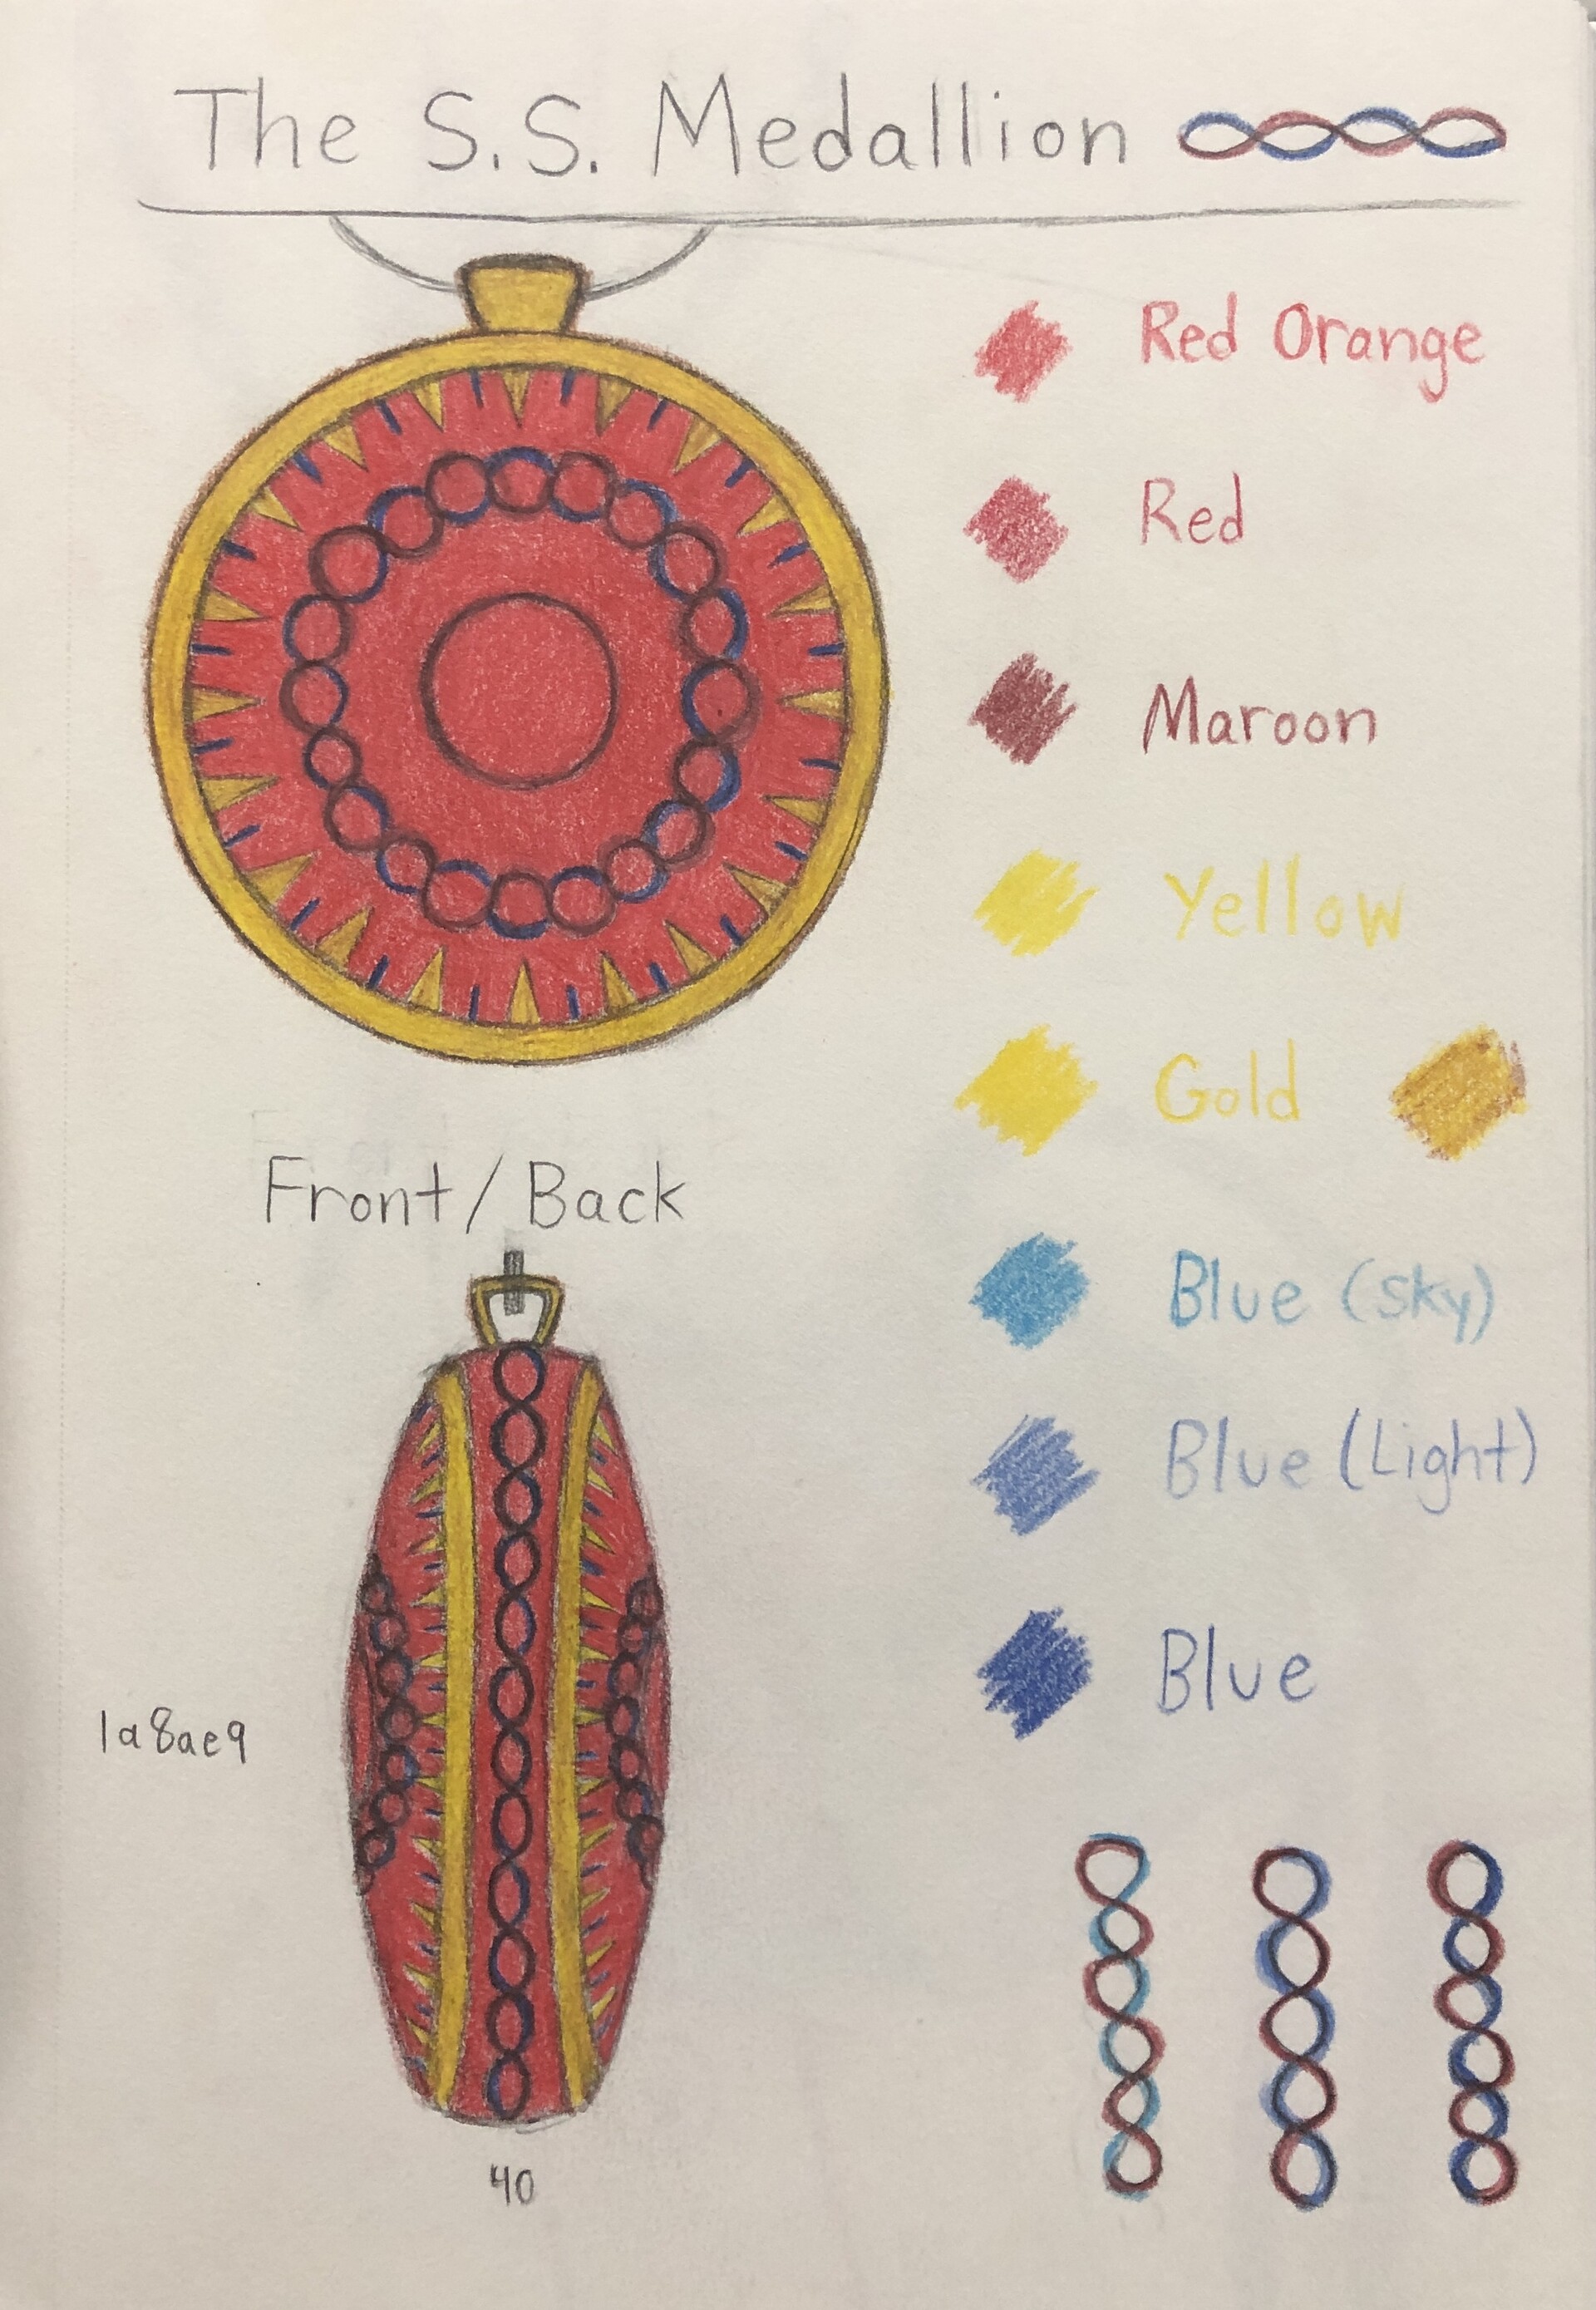 The S.S. Medallion
Red Orange
Red
Maroon
Yellow
Gold
Front/Back
Blue (Sky)
Blue (Light)
Blue
1a8ae9
40